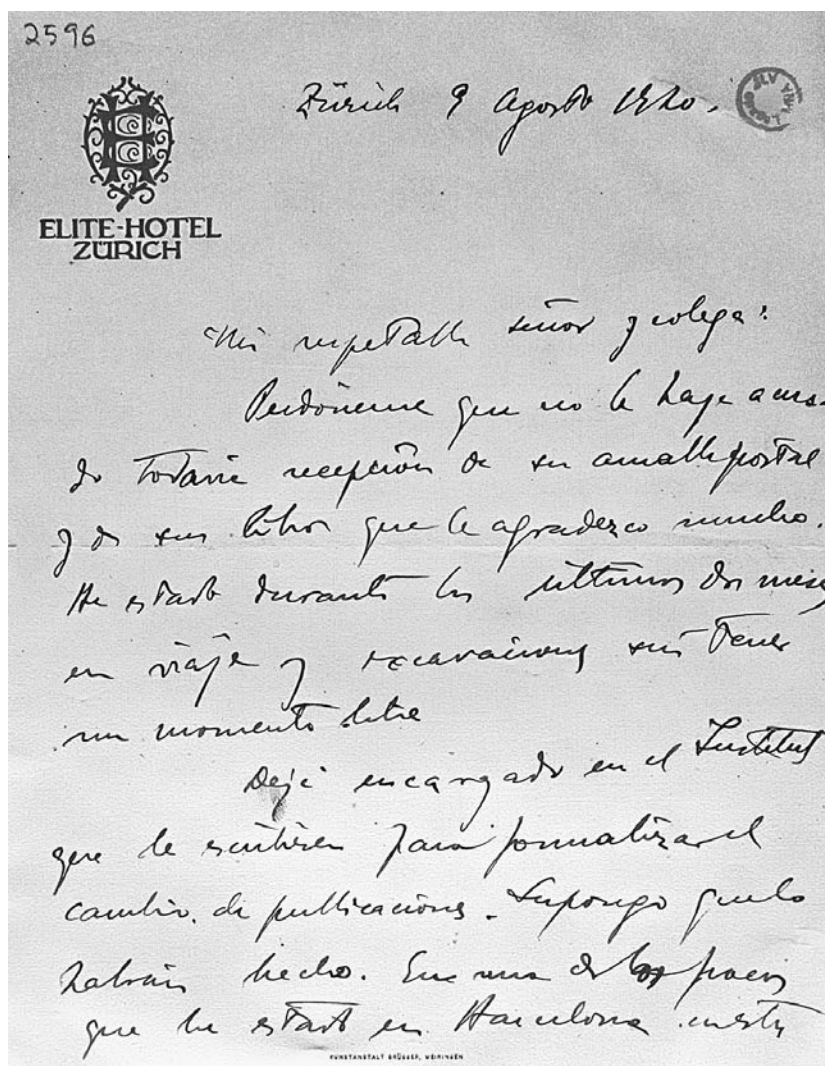 2596
Zürich 9 Agosto 1920.
ELITE-HOTEL
ZÜRICH
Mi respetable señor y colega:
Perdóneme que no le haya acusa-
do todavía recepción de su amable postal
y de sus libros que le agradezco mucho.
He estado durante los últimos dos meses
en viaje y excavaciones sin tener
un momento libre
Dejé encargado en el Institut
que le escribiesen para formalizar el
cambio de publicaciones. Supongo que lo
habrán hecho. En uno de los pocos
que he estado en Barcelona
KUNSTANSTALT BRÜGGER, MEIRINGEN